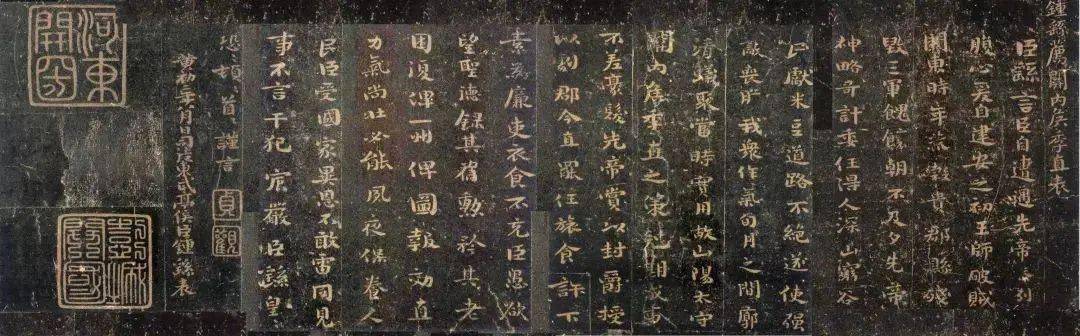 鍾繇薦關内侯季直表
臣繇言臣自遭遇先帝忝列
腹心爰自建安之初王師破賊
關東時年荒穀貴郡縣殘
毁三軍餽饟朝不及夕先帝
神略奇計委任得人深山窮谷
民獻米豆道路不絶遂使强
敵喪膽我衆作氣旬月之間廓
清蟻聚當時實用故山陽太守
關内侯季直之策尅期成事
不差豪髮先帝賞以封爵授
以劇郡今直罷任旅食許下
素爲廉吏衣食不充臣愚欲
望聖德録其舊勲矜其老
困復俾一州俾圖報効直
力氣尚壯必能夙夜保養人
民臣受國家異恩不敢雷同見
事不言干犯宸嚴臣繇皇
恐頓首謹言
貞觀
黄初二年八月日司徒東武亭侯臣鍾繇表
河東